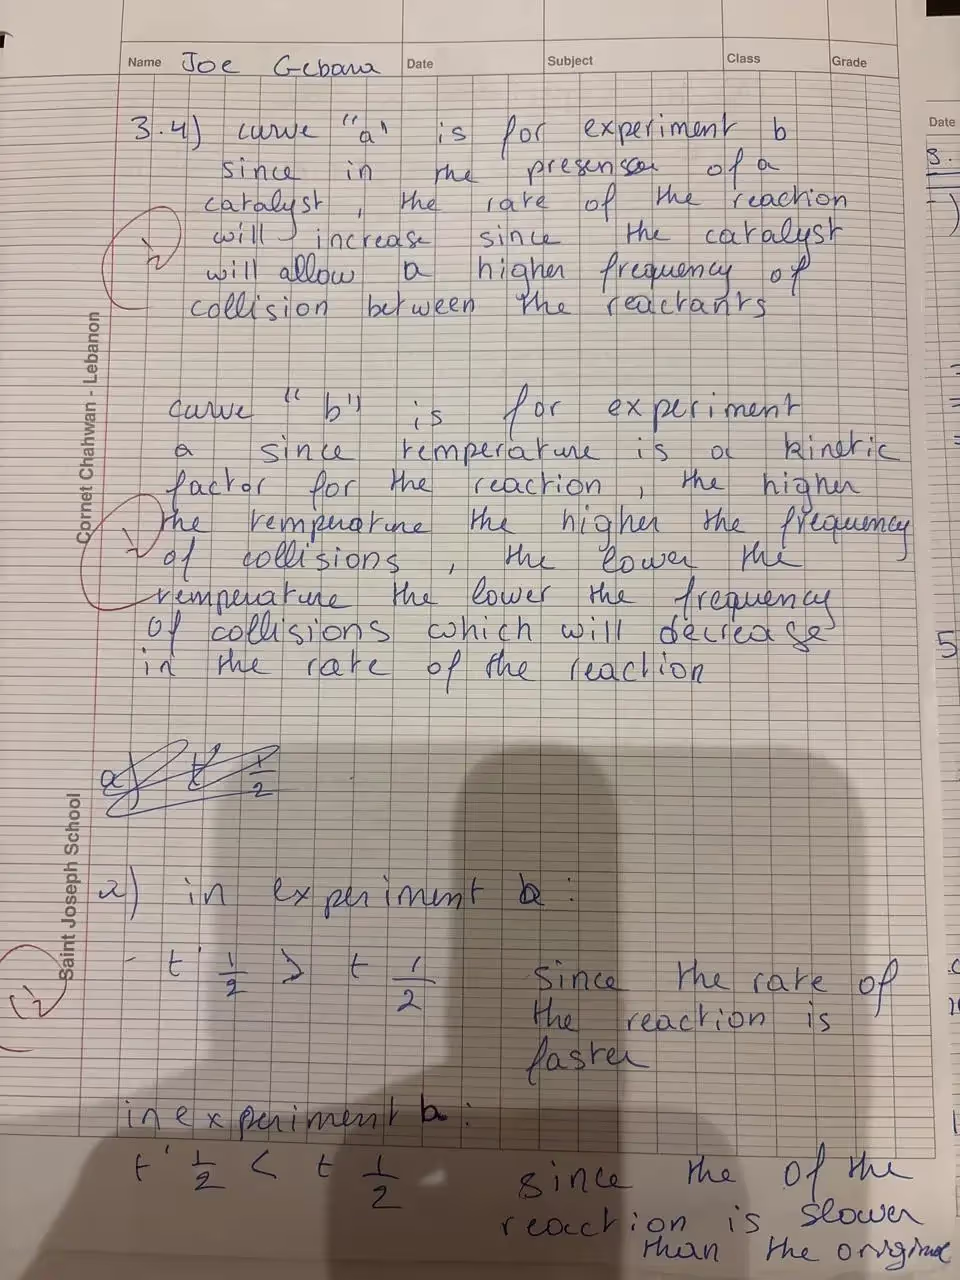 Name Joe Gebara Date Subject Class Grade
3.4) curve "a" is for experiment b
since in the presense of a
catalyst, the rate of the reaction
will increase since the catalyst
will allow a higher frequency of
collision between the reactants
curve "b" is for experiment
a since temperature is a kinetic
factor for the reaction, the higher
the temperature the higher the frequency
of collisions, the lower the
temperature the lower the frequency
of collisions which will decrease
in the rate of the reaction
a) t 1/2
2) in experiment
- t' 1/2 > t 1/2 since the rate of
the reaction is
faster
in experiment
t' 1/2 < t 1/2 since the of the
reaction is slower
than the original
Cornet Chahwan - Lebanon
Saint Joseph School
Date
5